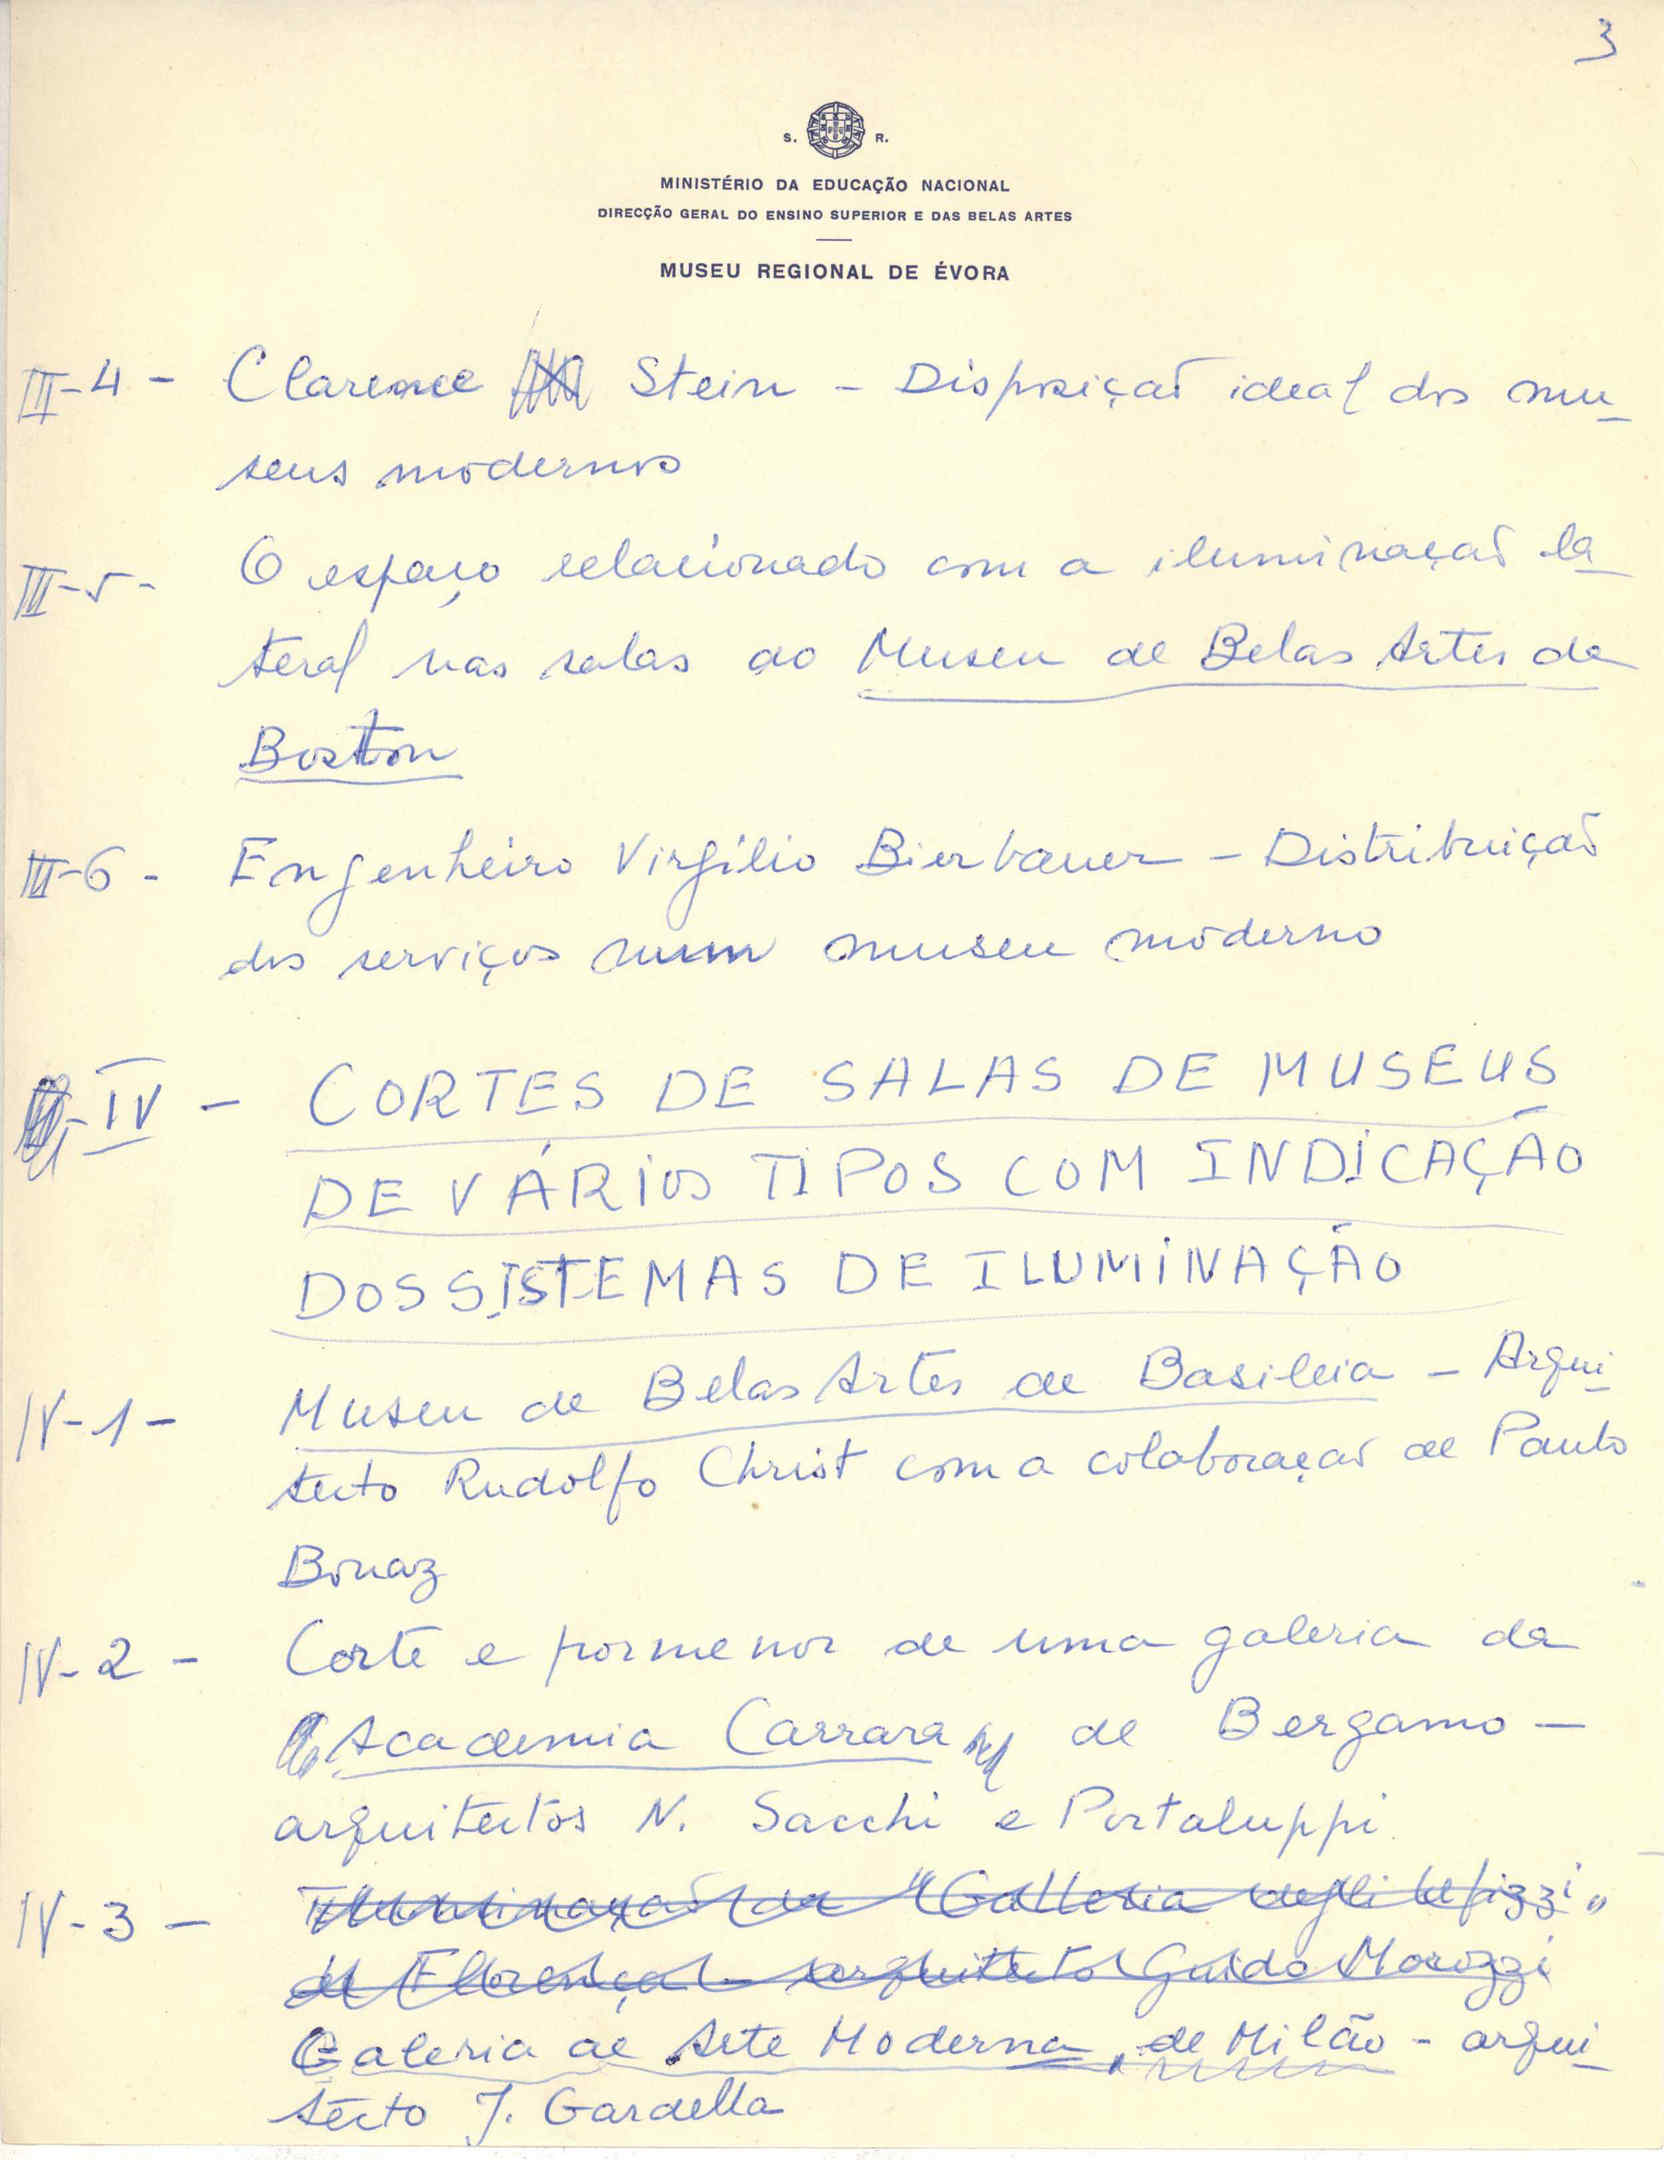 3
S. R.
MINISTÉRIO DA EDUCAÇÃO NACIONAL
DIRECÇÃO GERAL DO ENSINO SUPERIOR E DAS BELAS ARTES
MUSEU REGIONAL DE ÉVORA
III-4 - Clarence Stein - Disposição ideal dos mu-
seus modernos
III-5 - O espaço relacionado com a iluminação la-
teral nas salas do Museu de Belas Artes de
Boston
III-6 - Engenheiro Virgílio Bierbauer - Distribuição
dos serviços num museu moderno
IV - CORTES DE SALAS DE MUSEUS
DE VÁRIOS TIPOS COM INDICAÇÃO
DOS SISTEMAS DE ILUMINAÇÃO
IV-1 - Museu de Belas Artes de Basileia - Arqui-
tecto Rudolfo Christ com a colaboração de Paulo
Bonaz
IV-2 - Corte e pormenor de uma galeria da
Academia Carrara de Bergamo -
arquitectos N. Sacchi e Portaluppi
IV-3 - Iluminação da "Galleria degli Uffizzi"
de Florença - arquitecto Guido Morozzi
Galeria de Arte Moderna, de Milão - arqui-
tecto J. Gardella